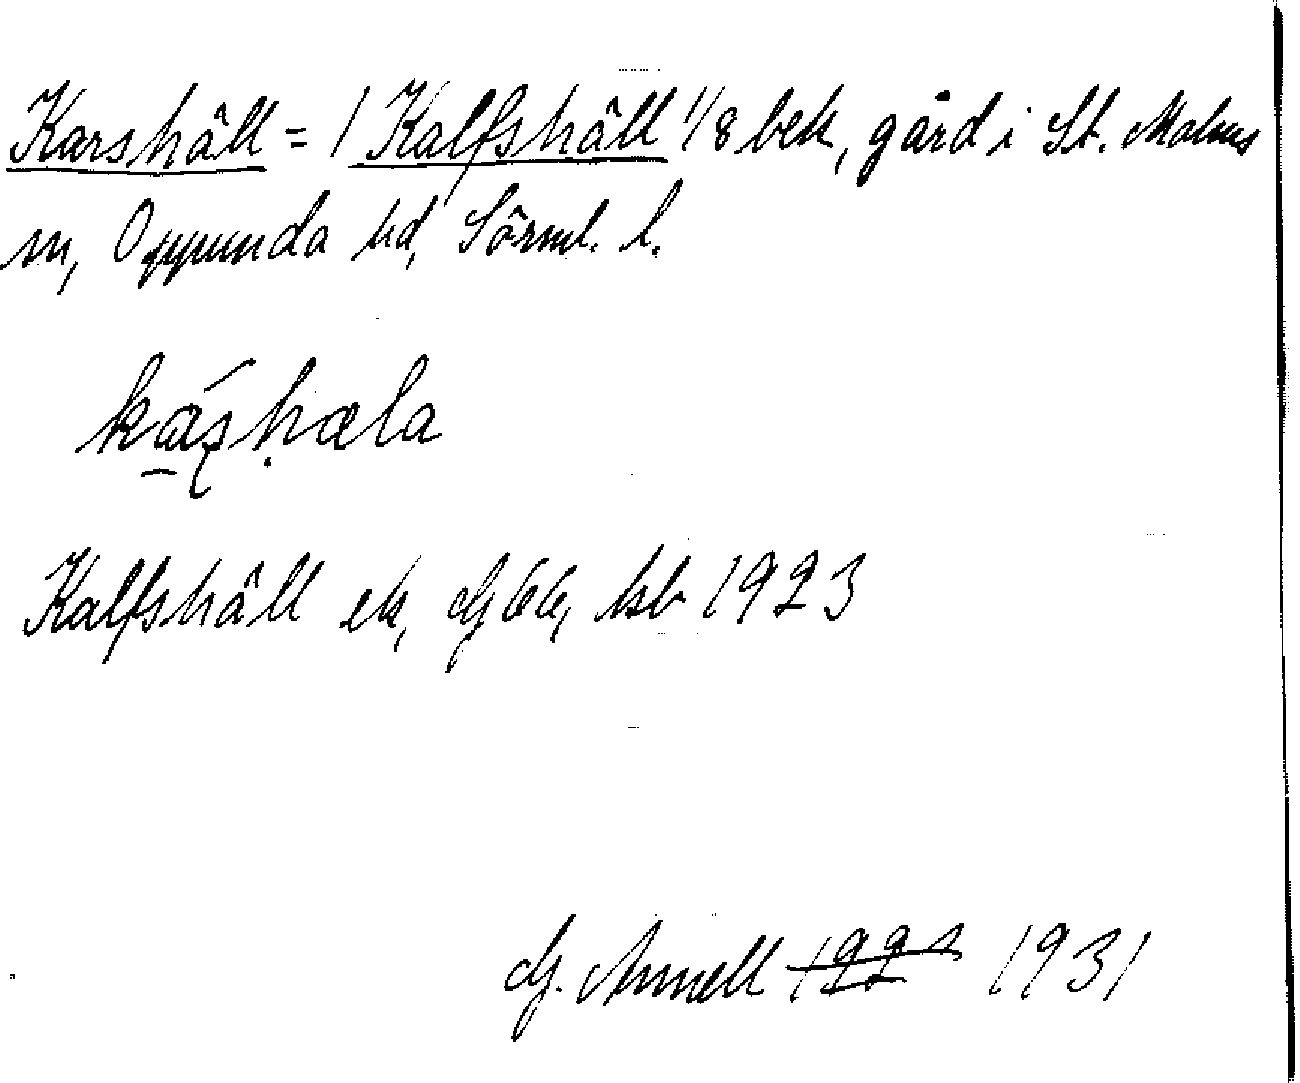 Karshäll = / Kalfshäll 1/8 bek, gård i St. Malms
sn, Oppunda hd, Sörml. l.
káʂhæla
Kalfshäll ek, G66, hsb 1923
G. Annell 1931